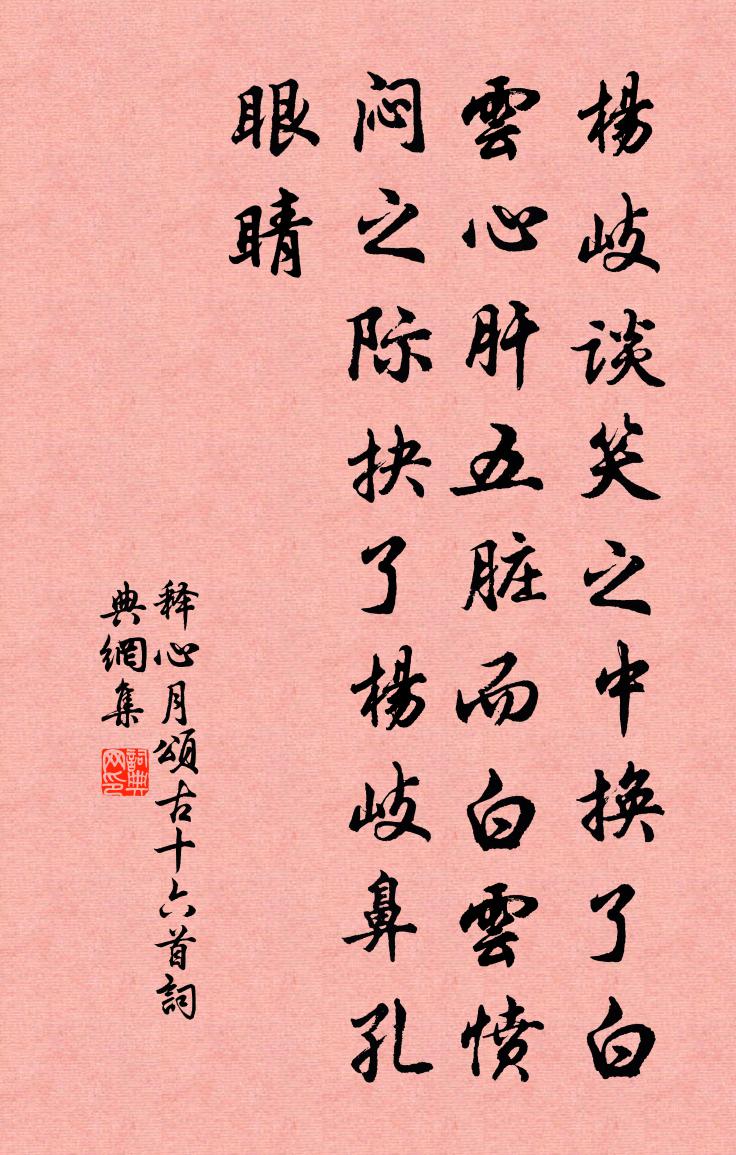 楊岐谈笑之中换了白
雲心肝五脏而白雲愤
闷之际抉了楊岐鼻孔
眼睛
释心月頌古十六首詞
典網集
詞典网印